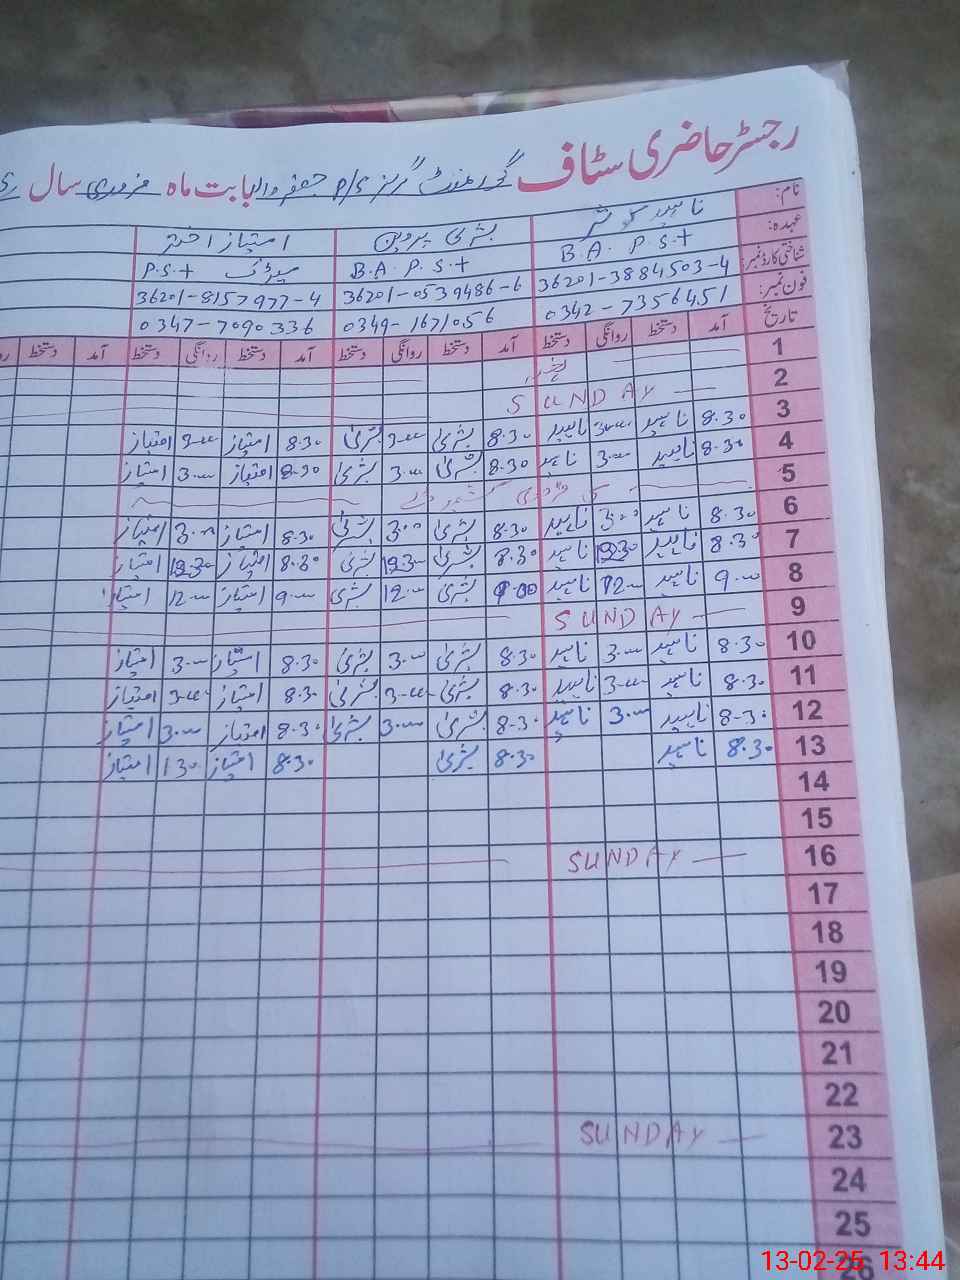 رجسٹر حاضری سٹاف گورنمنٹ گرلز P/S جعفر والہ بابت ماہ فروری سال
نام: ناہید کوثر بشریٰ پروین امتیاز اختر
عہدہ: B.A. P.S.T B.A. P.S.T میٹرک P.S.T
شناختی کارڈ نمبر: 36201-3884503-4 36201-0539486-6 36201-8157977-4
فون نمبر: 0342-7356451 0349-1671056 0347-7090336
تاریخ آمد دستخط روانگی دستخط آمد دستخط روانگی دستخط آمد دستخط روانگی دستخط آمد دستخط
1
2 SUNDAY
3 8.30 ناہید 3.00 ناہید 8.30 بشریٰ 3.00 بشریٰ 8.30 امتیاز 3.00 امتیاز
4 8.30 ناہید 3.00 ناہید 8.30 بشریٰ 3.00 بشریٰ 8.30 امتیاز 3.00 امتیاز
5 فروری کشمیر ڈے
6 8.30 ناہید 3.00 ناہید 8.30 بشریٰ 3.00 بشریٰ 8.30 امتیاز 3.00 امتیاز
7 8.30 ناہید 12.30 ناہید 8.30 بشریٰ 12.30 بشریٰ 8.30 امتیاز 12.30 امتیاز
8 9.00 ناہید 12.00 ناہید 9.00 بشریٰ 12.00 بشریٰ 9.00 امتیاز 12.00 امتیاز
9 SUNDAY
10 8.30 ناہید 3.00 ناہید 8.30 بشریٰ 3.00 بشریٰ 8.30 امتیاز 3.00 امتیاز
11 8.30 ناہید 3.00 ناہید 8.30 بشریٰ 3.00 بشریٰ 8.30 امتیاز 3.00 امتیاز
12 8.30 ناہید 3.00 ناہید 8.30 بشریٰ 3.00 بشریٰ 8.30 امتیاز 3.00 امتیاز
13 8.30 ناہید 8.30 بشریٰ 8.30 امتیاز 1.30 امتیاز
14
15
16 SUNDAY
17
18
19
20
21
22
23 SUNDAY
24
25
26
13-02-25 13:44